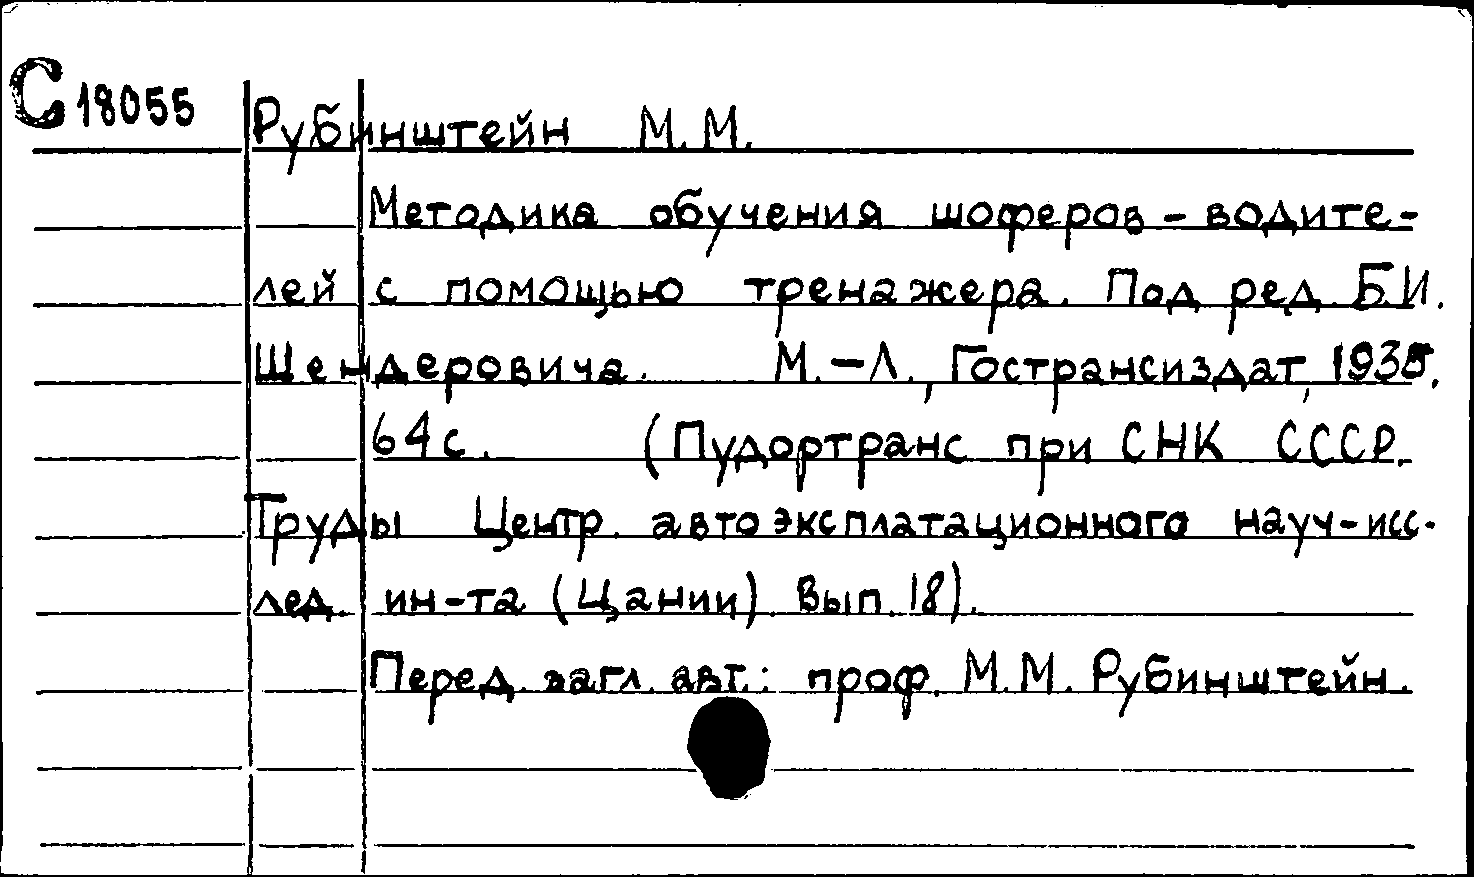 С 18055
Рубинштейн М.М.
Методика обучения шоферов-водите-
лей с помощью тренажера. Под ред. Б.И.
Шендеровича. М.-Л., Гострансиздат, 1935.
64 с. (Пудортранс при СНК СССР.
Труды Центр. автоэксплатационного науч-исс-
лед. ин-та (Цании). Вып. 18).
Перед. загл. авт.: проф. М.М. Рубинштейн.